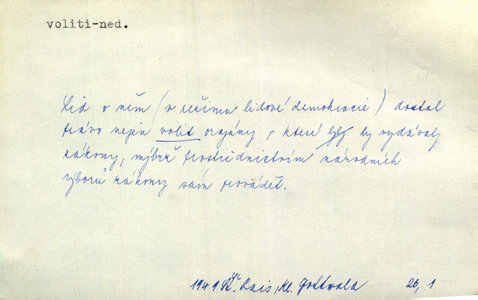 voliti-ned.
Lid v něm (v režimu lidové demokracie) dostal
právo nejen volit orgány, které by vydávaly
zákony, nýbrž prostřednictvím národních
výborů zákony sám provádět.
1949 Vl. Rais, Kl. Gottwald 26, 1